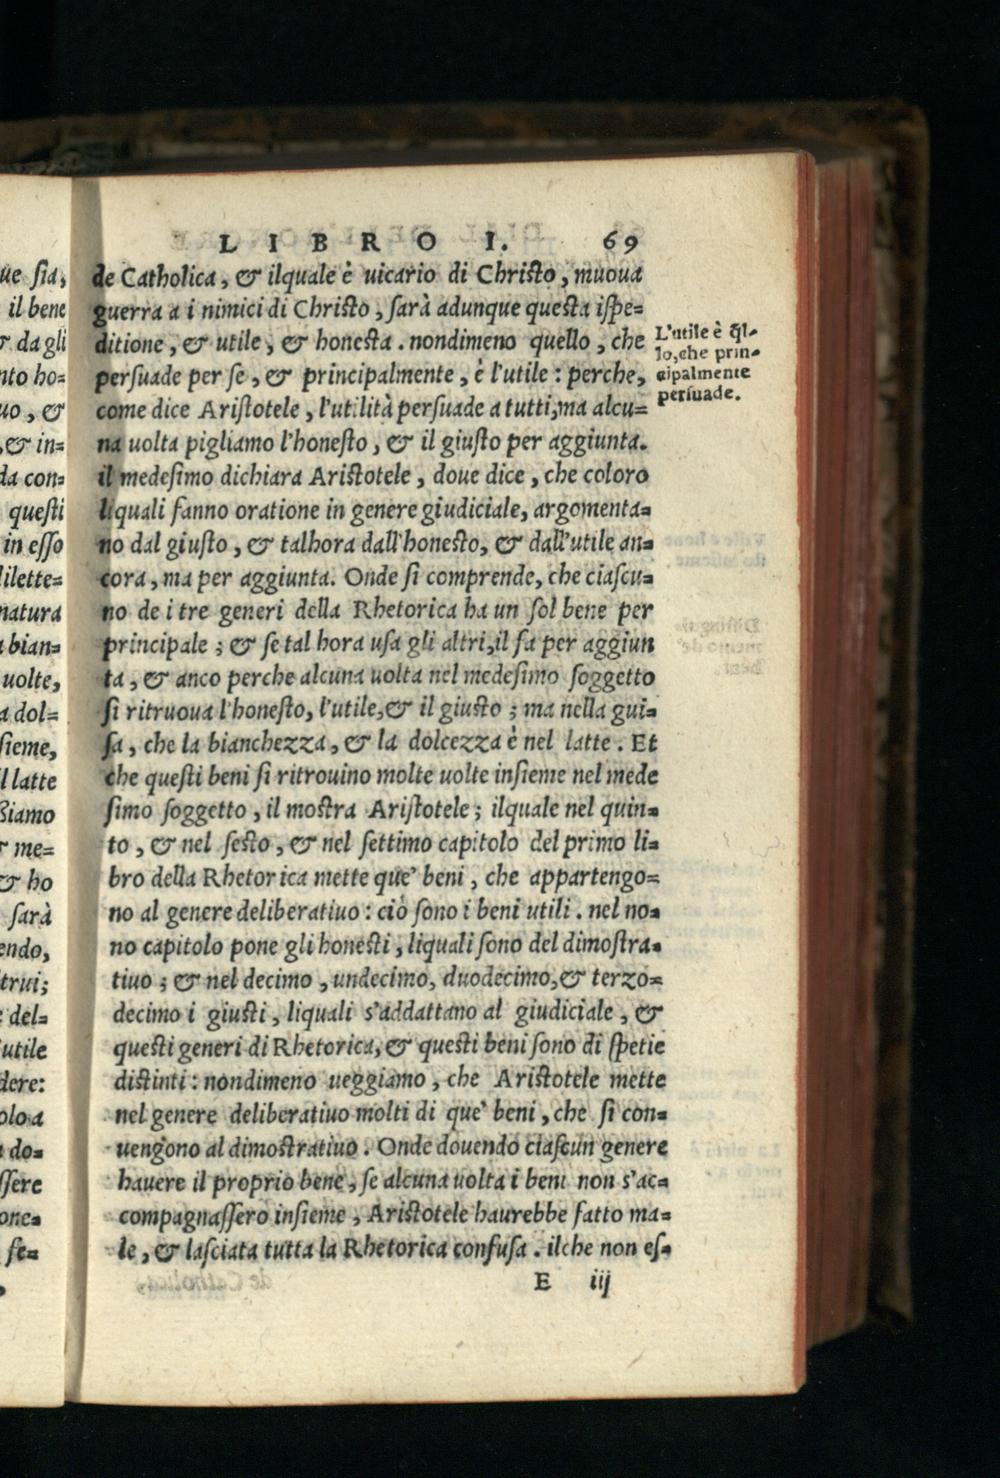 LIBRO I. 69
de Catholica, & ilquale è uicario di Christo, muoua
guerra a i nimici di Christo, sarà adunque questa ispe=
ditione, & utile, & honesta. nondimeno quello, che
persuade per se, & principalmente, è l'utile: perche,
come dice Aristotele, l'utilità persuade a tutti; ma alcu=
na uolta pigliamo l'honesto, & il giusto per aggiunta.
il medesimo dichiara Aristotele, doue dice, che coloro
liquali fanno oratione in genere giudiciale, argomenta=
no dal giusto, & talhora dall'honesto, & dall'utile an=
cora, ma per aggiunta. Onde si comprende, che ciascu=
no de i tre generi della Rhetorica ha un sol bene per
principale; & se tal hora usa gli altri, il fa per aggiun
ta, & anco perche alcuna uolta nel medesimo soggetto
si ritruoua l'honesto, l'utile, & il giusto; ma nella gui=
sa, che la bianchezza, & la dolcezza è nel latte. Et
che questi beni si ritrouino molte uolte insieme nel mede
simo soggetto, il mostra Aristotele; ilquale nel quin=
to, & nel sesto, & nel settimo capitolo del primo li=
bro della Rhetorica mette que' beni, che appartengo=
no al genere deliberatiuo: ciò sono i beni utili. nel no=
no capitolo pone gli honesti, liquali sono del dimostra=
tiuo; & nel decimo, undecimo, duodecimo, & terzo=
decimo i giusti, liquali s'addattano al giudiciale, &
questi generi di Rhetorica, & questi beni sono di spetie
distinti: nondimeno ueggiamo, che Aristotele mette
nel genere deliberatiuo molti di que' beni, che si con=
uengono al dimostratiuo. Onde douendo ciascun genere
hauere il proprio bene, se alcuna uolta i beni non s'ac=
compagnassero insieme, Aristotele haurebbe fatto ma=
le, & lasciata tutta la Rhetorica confusa. ilche non es=
E iij
L'utile è q̃l-
lo, che prin-
cipalmente
persuade.
ue sia,
il bene
& da gli
nto ho=
uo, &
, & in=
da con=
questi
in esso
dilette=
natura
bian=
uolte,
a dol=
sieme,
il latte
ßiamo
me=
& ho
sarà
endo,
trui;
del=
utile
dere:
olo a
do=
ssere
one=
se=